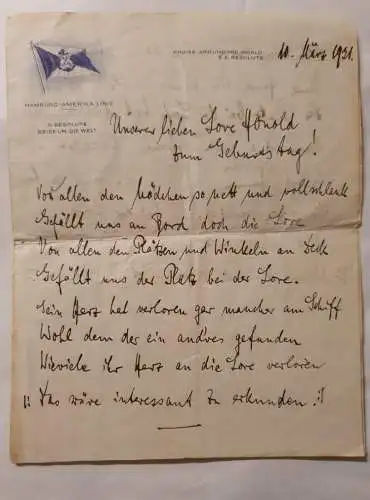 CRUISE AROUND THE WORLD
S.S. RESOLUTE
10. März 1931.
HAMBURG-AMERIKA LINIE
D. RESOLUTE
REISE UM DIE WELT
Unserer lieben Lore
zum Geburtstag!
Von allen den Mädchen so nett und vollschlank
Gefällt uns an Bord doch die Lore
Von allen den Plätzen und Winkeln an Deck
Gefällt uns der Platz bei der Lore.
Sein Herz hat verloren gar mancher am Schiff
Wohl dem der ein and'res gefunden
Wieviele ihr Herz an die Lore verloren
|: Das wäre interessant zu erkunden :|